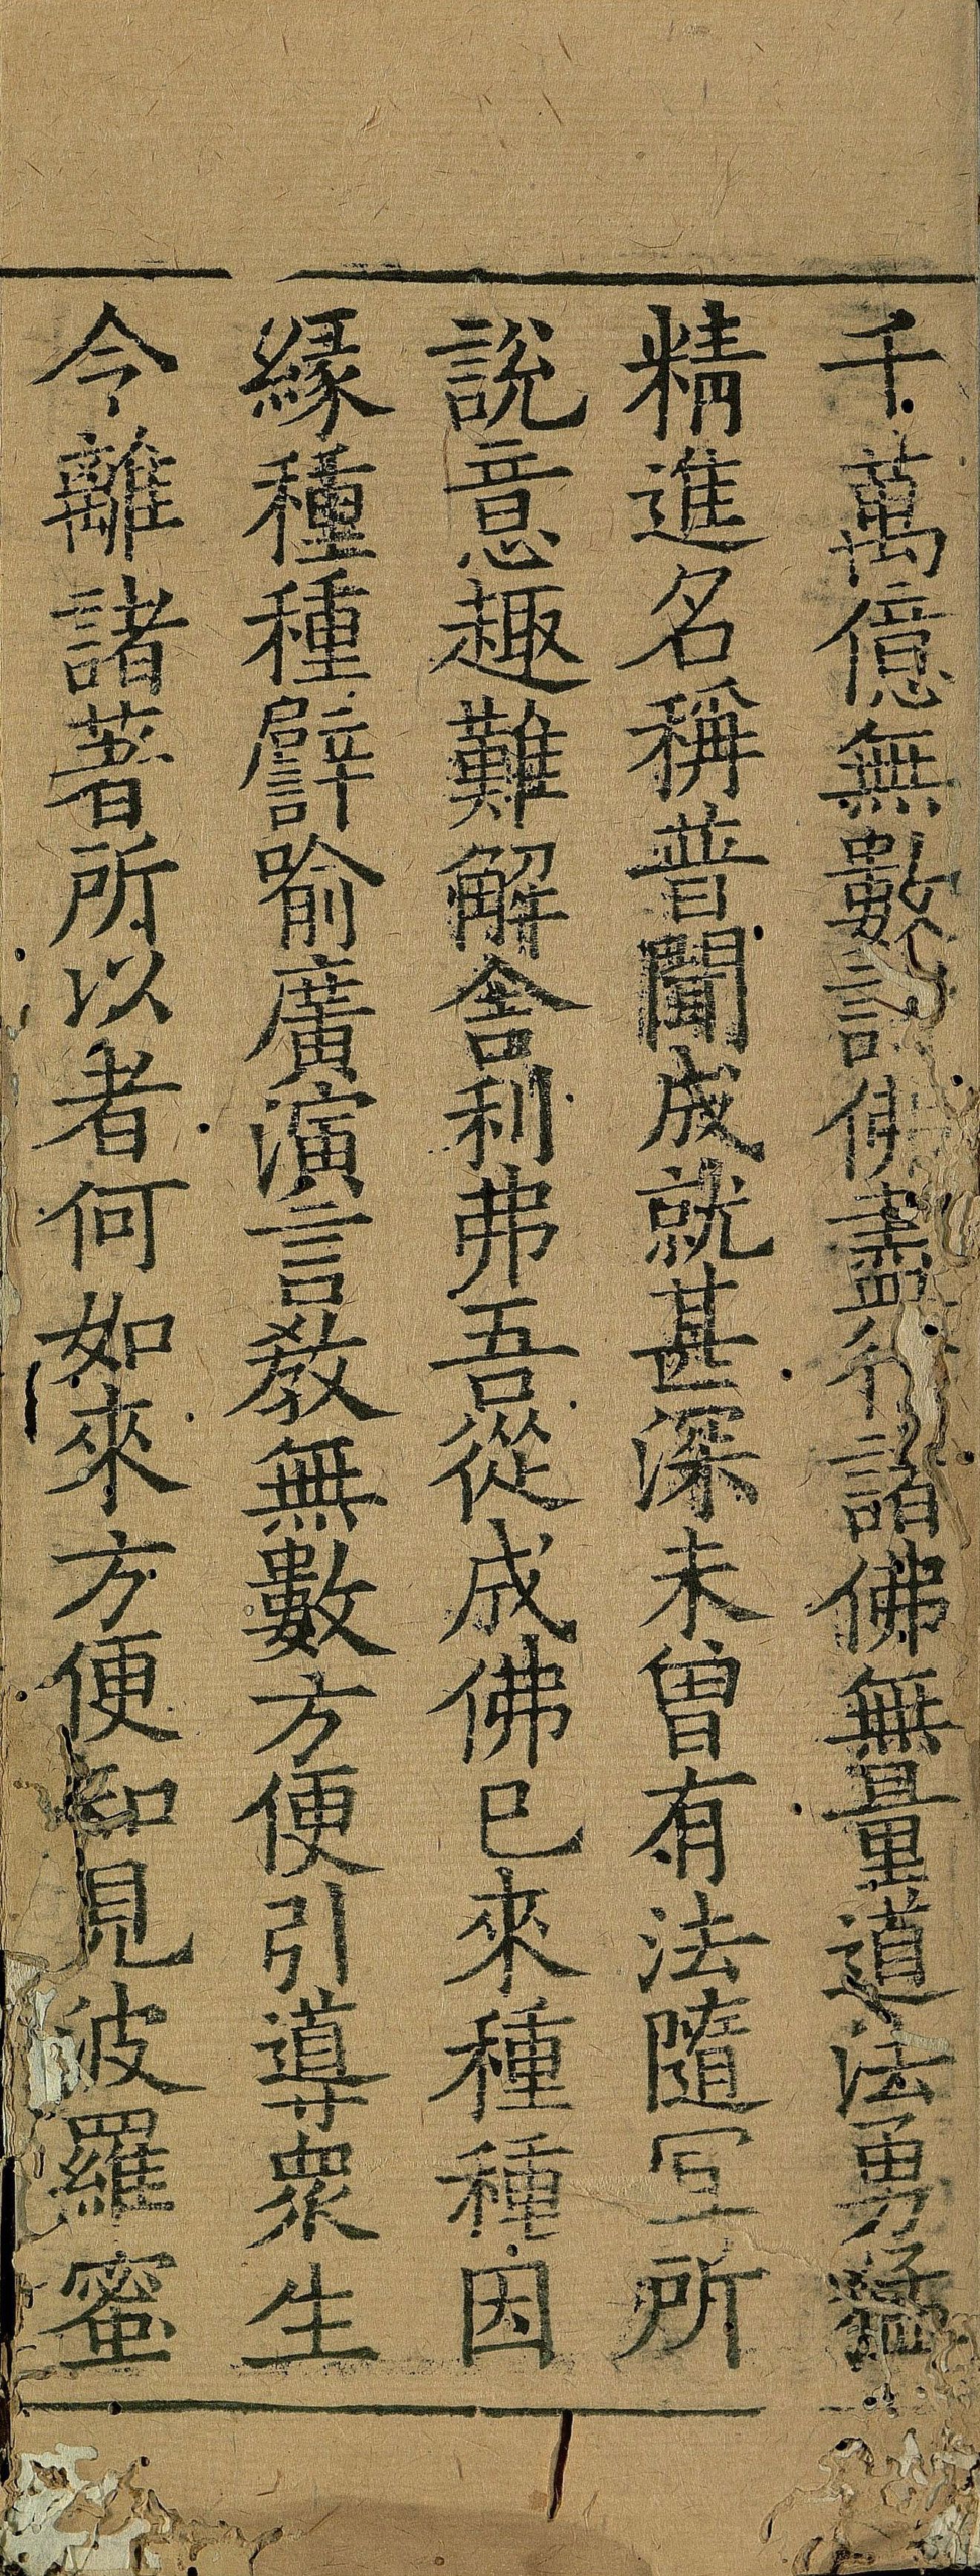 千萬億無數諸佛盡行諸佛無量道法勇猛
精進名稱普聞成就甚深未曾有法隨冝所
說意趣難解舍利弗吾從成佛已來種種因
緣種種譬喻廣演言教無數方便引導衆生
今離諸著所以者何如來方便知見波羅蜜